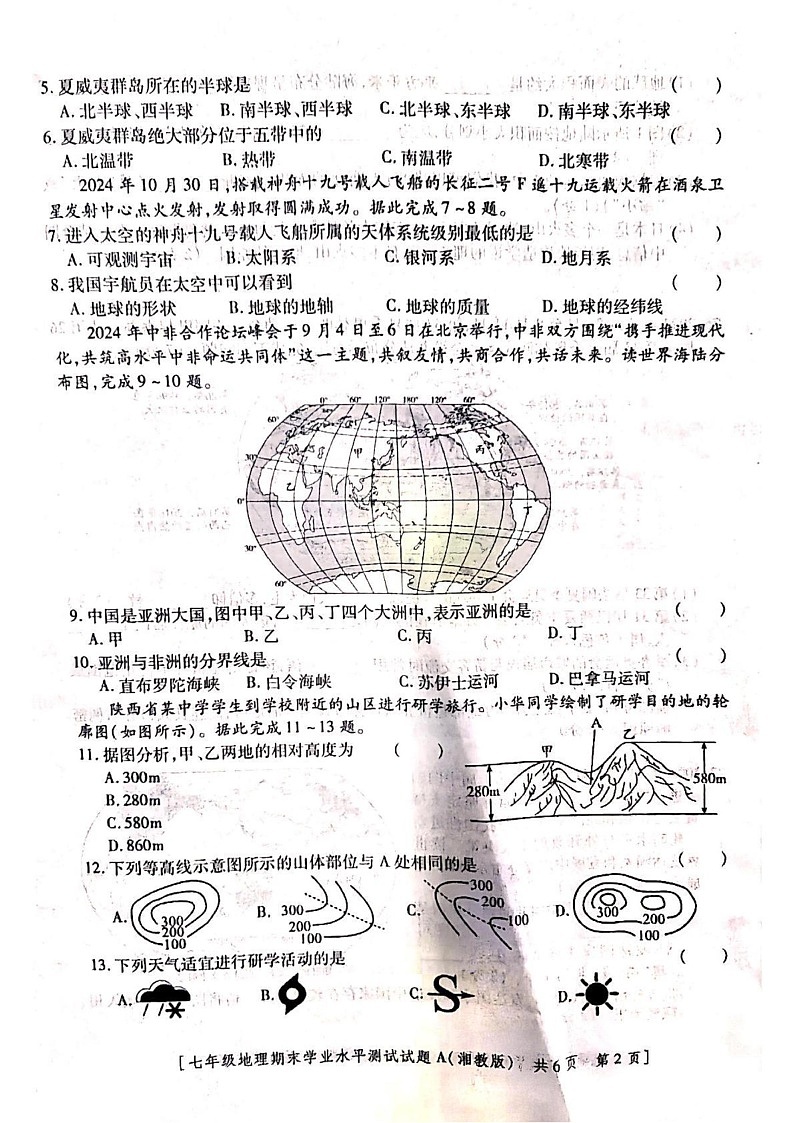 5. 夏威夷群岛所在的半球是 (    )
A. 北半球、西半球 B. 南半球、西半球 C. 北半球、东半球 D. 南半球、东半球
6. 夏威夷群岛绝大部分位于五带中的 (    )
A. 北温带 B. 热带 C. 南温带 D. 北寒带
2024年10月30日,搭载神舟十九号载人飞船的长征二号F遥十九运载火箭在酒泉卫
星发射中心点火发射,发射取得圆满成功。据此完成7~8题。
7. 进入太空的神舟十九号载人飞船所属的天体系统级别最低的是 (    )
A. 可观测宇宙 B. 太阳系 C. 银河系 D. 地月系
8. 我国宇航员在太空中可以看到 (    )
A. 地球的形状 B. 地球的地轴 C. 地球的质量 D. 地球的经纬线
2024年中非合作论坛峰会于9月4日至6日在北京举行,中非双方围绕“携手推进现代
化,共筑高水平中非命运共同体”这一主题,共叙友情,共商合作,共话未来。读世界海陆分
布图,完成9~10题。
0° 60° 120° 180° 120° 60°
60° 60°
30° 30°
甲 丙
乙
0° 0°
丁
30° 30°
60°
9. 中国是亚洲大国,图中甲、乙、丙、丁四个大洲中,表示亚洲的是 (    )
A. 甲 B. 乙 C. 丙 D. 丁
10. 亚洲与非洲的分界线是 (    )
A. 直布罗陀海峡 B. 白令海峡 C. 苏伊士运河 D. 巴拿马运河
陕西省某中学学生到学校附近的山区进行研学旅行。小华同学绘制了研学目的地的轮
廓图(如图所示)。据此完成11~13题。
11. 据图分析,甲、乙两地的相对高度为 (    )
A. 300m
B. 280m
C. 580m
D. 860m
A
甲 乙
280m 580m
12. 下列等高线示意图所示的山体部位与A处相同的是 (    )
A. 300 200 100
B. 300 200 100
C. 300 200 100
D. 300 200 100
13. 下列天气适宜进行研学活动的是 (    )
A. B. C. D.
[七年级地理期末学业水平测试试题A(湘教版) 共6页 第2页]